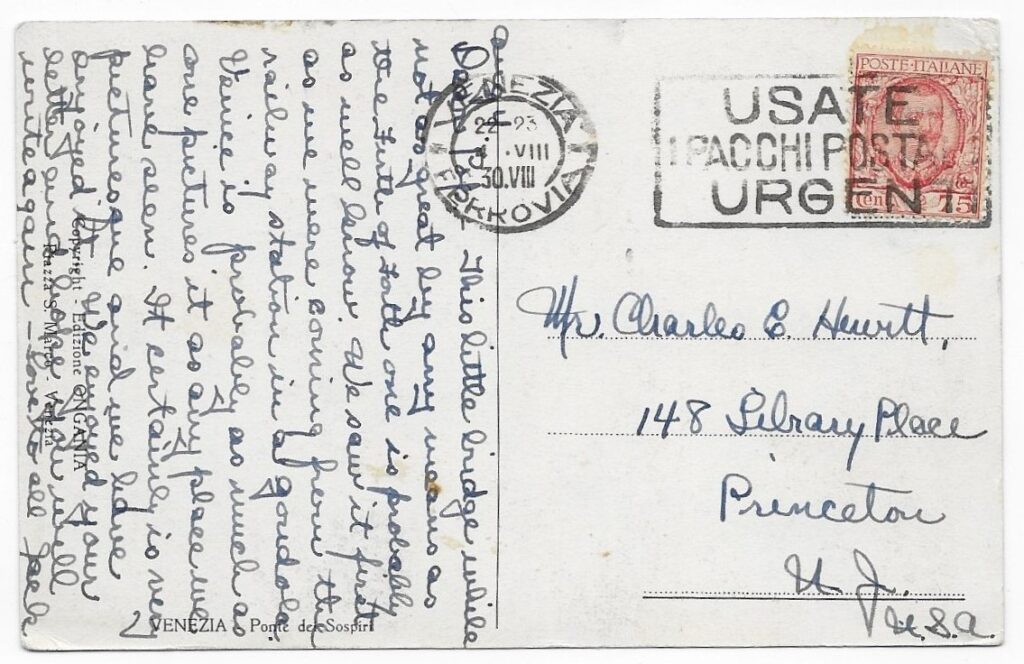 Dear — This little bridge while
not as great by any means as
the Firth of Forth one is probably
as well know. We saw it first
as we were coming from the
railway station in a gondola.
Venice is probably as much as
one pictures it as any place we
have seen. It certainly is very
picturesque and we have
enjoyed it. We enjoyed your
letter and hope you will
write again — Love to all Jack
Copyright - Edizione ONGANIA
Piazza S. Marco - Venezia
VENEZIA - Ponte dei Sospiri
VENEZIA
22-23
VIII
30.VIII
FERROVIA
USATE
I PACCHI POSTALI
URGENTI
POSTE·ITALIANE
Cent 75
Mr. Charles E. Hewitt,
148 Library Place
Princeton
N. J.
U.S.A.